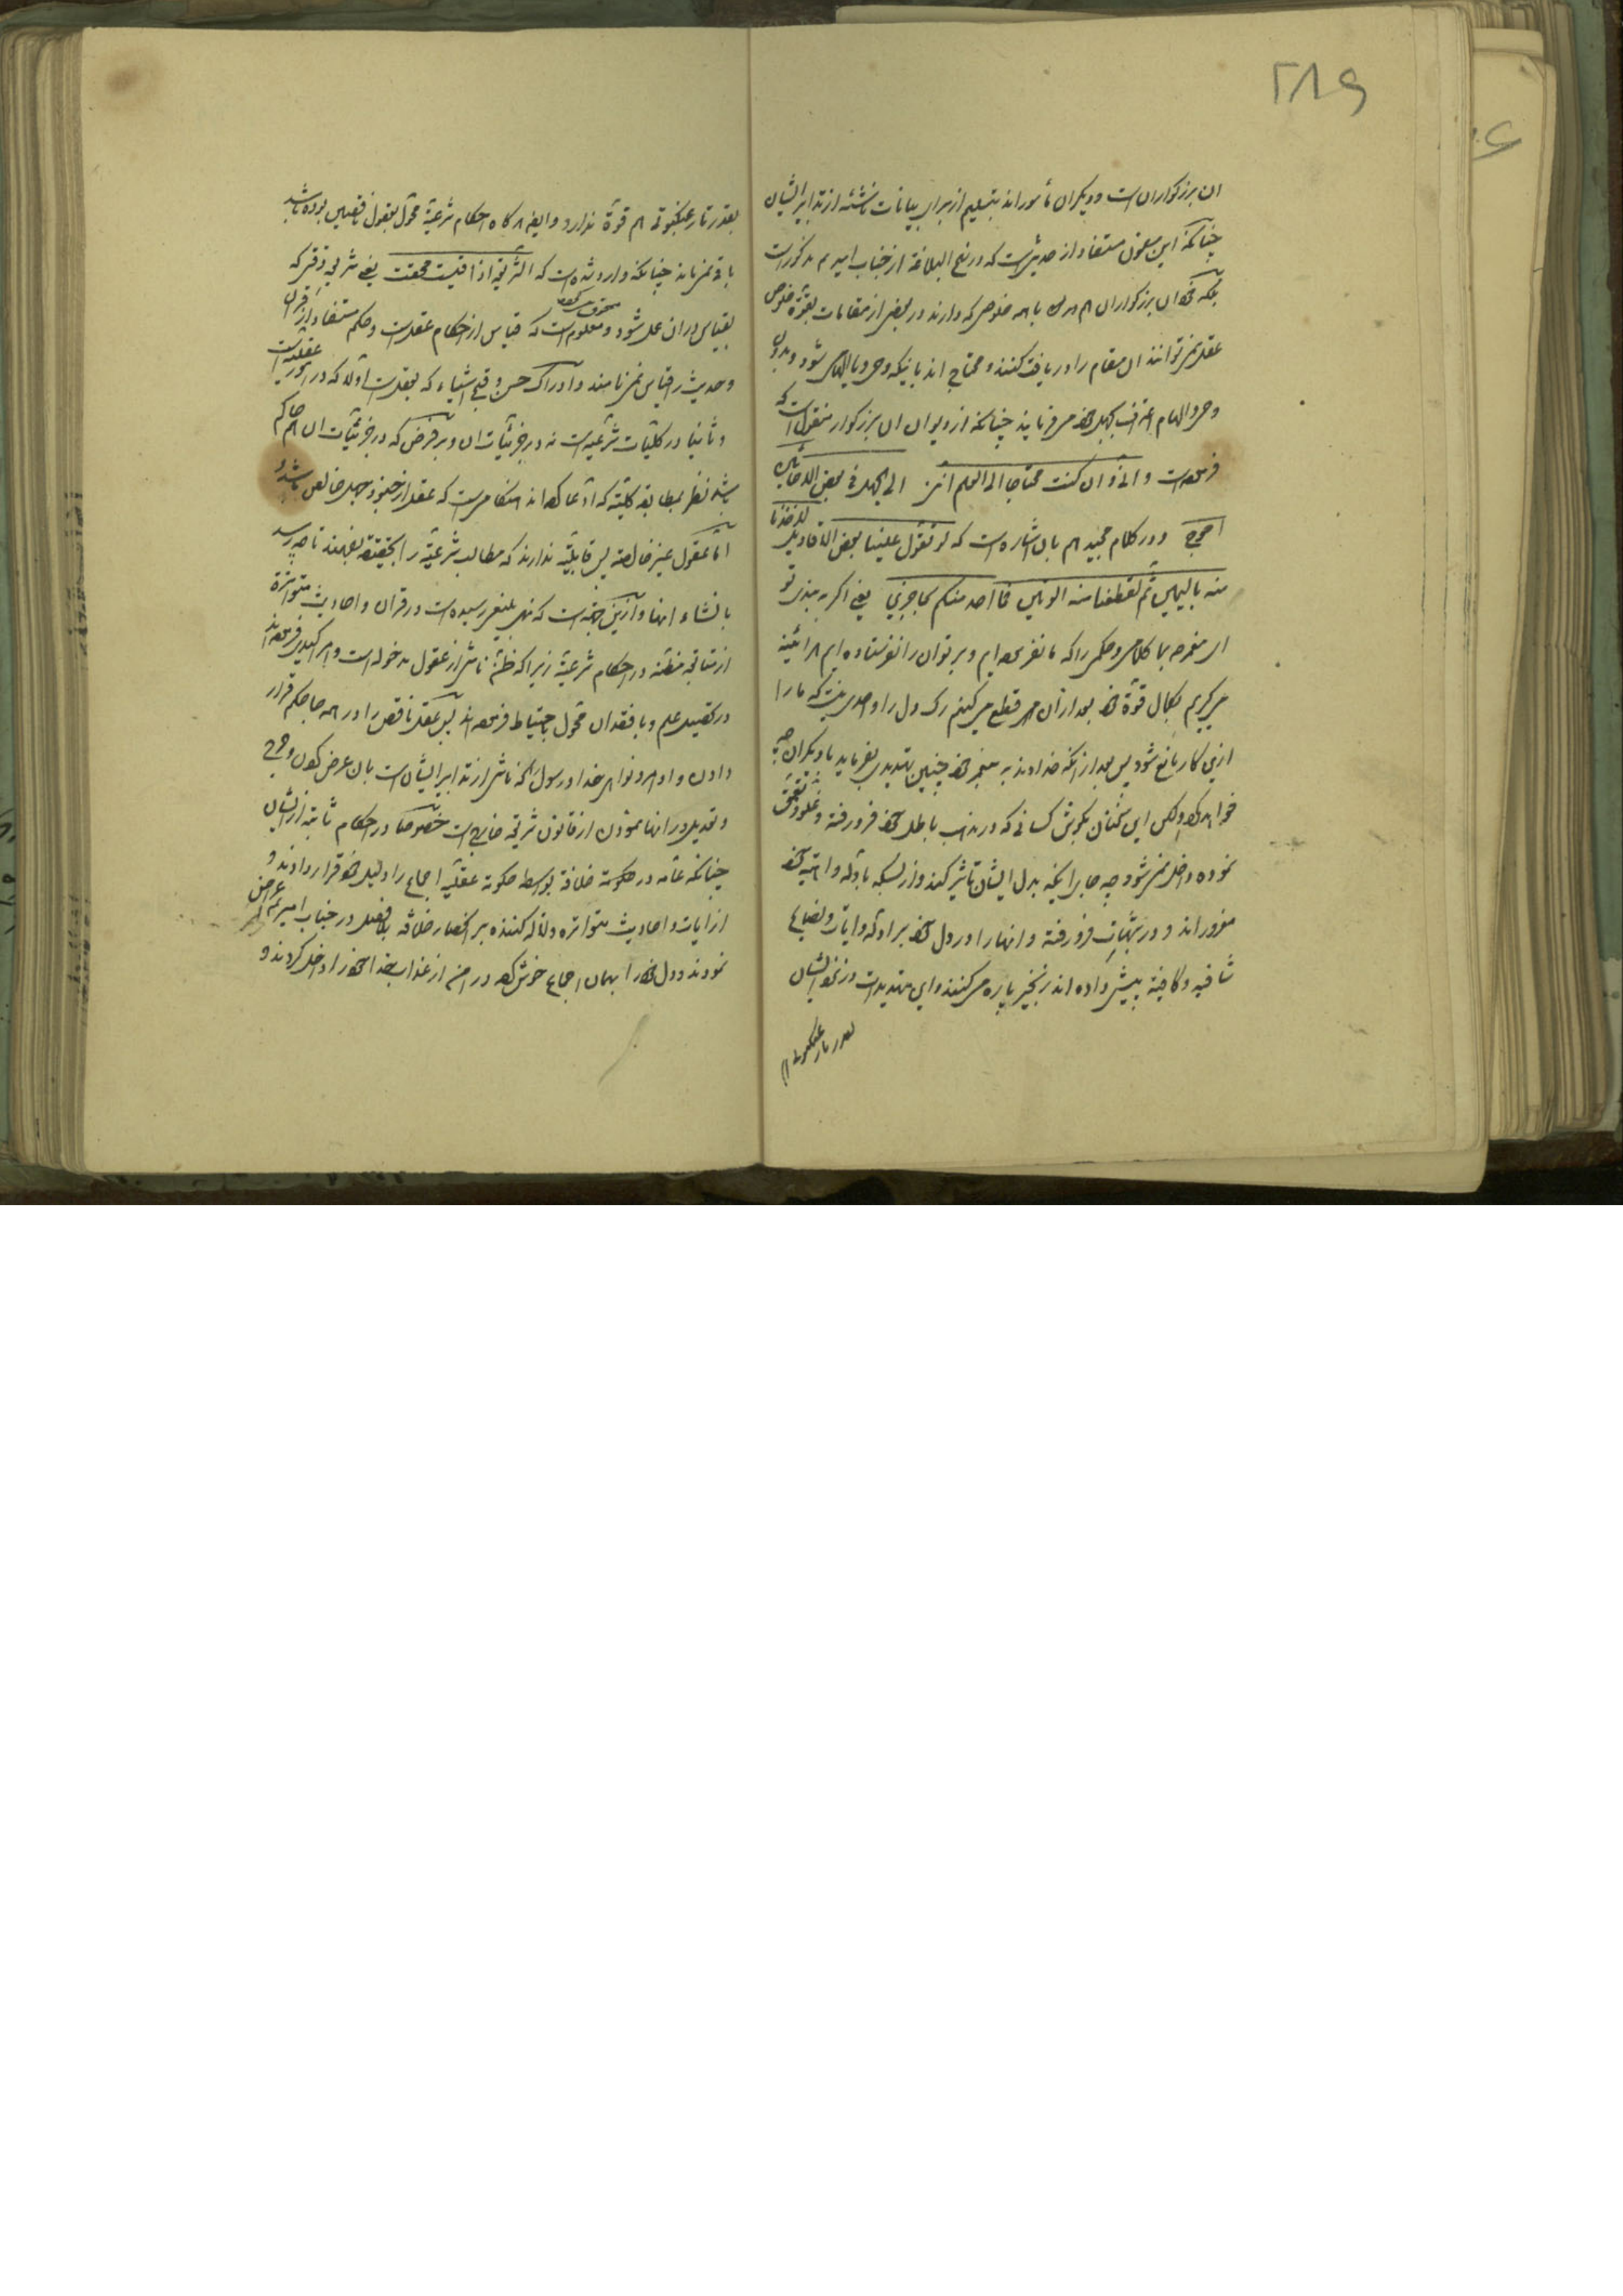 ۲۸۹
ان بزرکواران است و دیکران مأمورند بتسلیم از برای بیانات ناشئه از تدابیر ایشان
چنانکه این مضمون مستفاد از حدیثی است که در نهج البلاغة از جناب امیر م مذکور است
بلکه خود ان بزرکواران هم با همه خلوصی که دارند در بعضی از مقامات بقوة خلوص
عقل نمی توانند ان مقام را دریافت کنند و محتاج اند باینکه وحی و یا الهامی شود و بدون
وحی و الهام اعتراف بجهل خود میفرمایند چنانکه از دیوان ان بزرکوار منقول است که
فرموده است و انی وان کنت محتاجا الی العلم اننی الی الجهل فی بعض الاحایین
احوج و در کلام مجید هم بان اشاره است که لو تقول علینا بعض الاقاویل لاخذنا
منه بالیمین ثم لقطعنا منه الوتین فما احد منکم حاجزین یعنی اکر به بندی تو
ای محمد بما کلامی و حکمی را که ما نفرموده ایم و بر تو ان را نفرستاده ایم هراینه
می کیریم بکمال قوة خود بعد از ان هم قطع می کنیم رک دل را و احدی نیست که ما را
ازین کار مانع شود پس بعد از آنکه خداوند به پیغمبر خود چنین تهدیدی بفرماید با دیکران چه
خواهد کرد ولکن این سخنان بکوش کسانی که در مذهب باطل خود فرو رفته و غلو و تعمق
نموده داخل نمی شود چه جای اینکه بدل ایشان تأثیر کند و از بسکه بادله واهیه خود
مغرورند و در شبهات فرو رفته و انها را در دل خود برادله و ایات و نصایح
شافیه و کافیه پیش داده اند زنجیر پاره می کنند و این تهدیدات در نزد ایشان
بقدر تار عنکبوتی هم
بقدر تار عنکبوتی هم قوة ندارد و ایضا هر کاه احکام شرعیة محول بعقول ناقصین بوده باشد
باقی نمی ماند چنانکه وارد شده است که الشریعة اذا قیست محقت یعنی شریعة وقتی که
بقیاس در ان عمل شود محو می کردد و معلوم است که قیاس از احکام عقل است و حکم مستفاد از قران
و حدیث را قیاس نمی نامند و ادراک حسن و قبح اشیاء که بعقل است اولا که در امور عقلیه است
و ثانیا در کلیات شرعیه است نه در جزئیات ان و بر فرض که در جزئیات ان هم حاکم
باشد نظر بمطابقه کلیه که ادعا کرده اند هنکامی است که عقل از جنود جهل خالص باشد و
اما عقول غیر خالصه پس قابلیة ندارند که مطالب شرعیة را بحقیقة بفهمند تا چه رسد
بانشاء انها و ازین جهة است که نهی بلیغ رسیده است در قران و احادیث متواترة
از متابعة مظنه در احکام شرعیة زیرا که ظن ناشی از عقول مدخوله است و امر اکید فرموده اند
در تحصیل علم و با فقدان محول باحتیاط فرموده اند پس عقل ناقص را در همه جا حکم قرار
دادن و اوامر و نواهی خدا و رسول که ناشی از تدابیر ایشان است بان عرض کردن و جرح
و تعدیل در انها نمودن از قانون شریعة خارج است خصوصا در احکام ثابته از ایشان
چنانکه عامه در حکومت خلافة بتوسط حکومة عقلیه اجماع را دلیل خود قرار دادند و
از ایات و احادیث متواتره دلالة کننده بر انحصار خلافه بلافصل در جناب امیر م اعراض
نمودند و دل خود را بهمان اجماع خوش کرده در امن از عذاب خدا خود را داخل کردند و